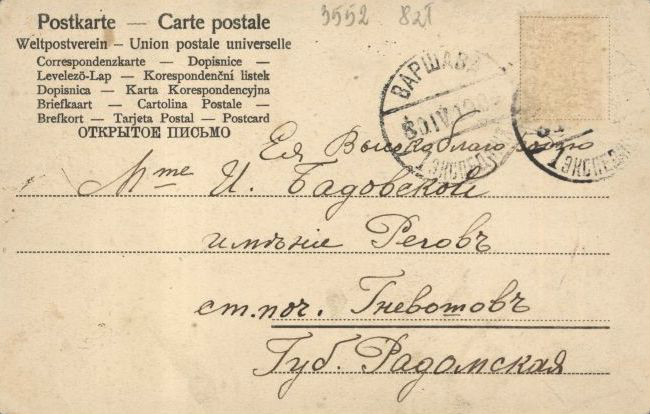 3552 82T
Postkarte — Carte postale
Weltpostverein — Union postale universelle
Correspondenzkarte — Dopisnice —
Levelezö-Lap — Korespondenční listek
Dopisnica — Karta Korespondencyjna
Briefkaart — Cartolina Postale —
Brefkort — Tarjeta Postal — Postcard
ОТКРЫТОЕ ПИСЬМО
ВАРШАВА
30.IV
1 ЭКСПЕД
1 ЭКСПЕД
Ея Высокоблагородію
Mme И. Бадовской
имѣніе Реговъ
ст.поч. Гневошовъ
Губ. Радомская